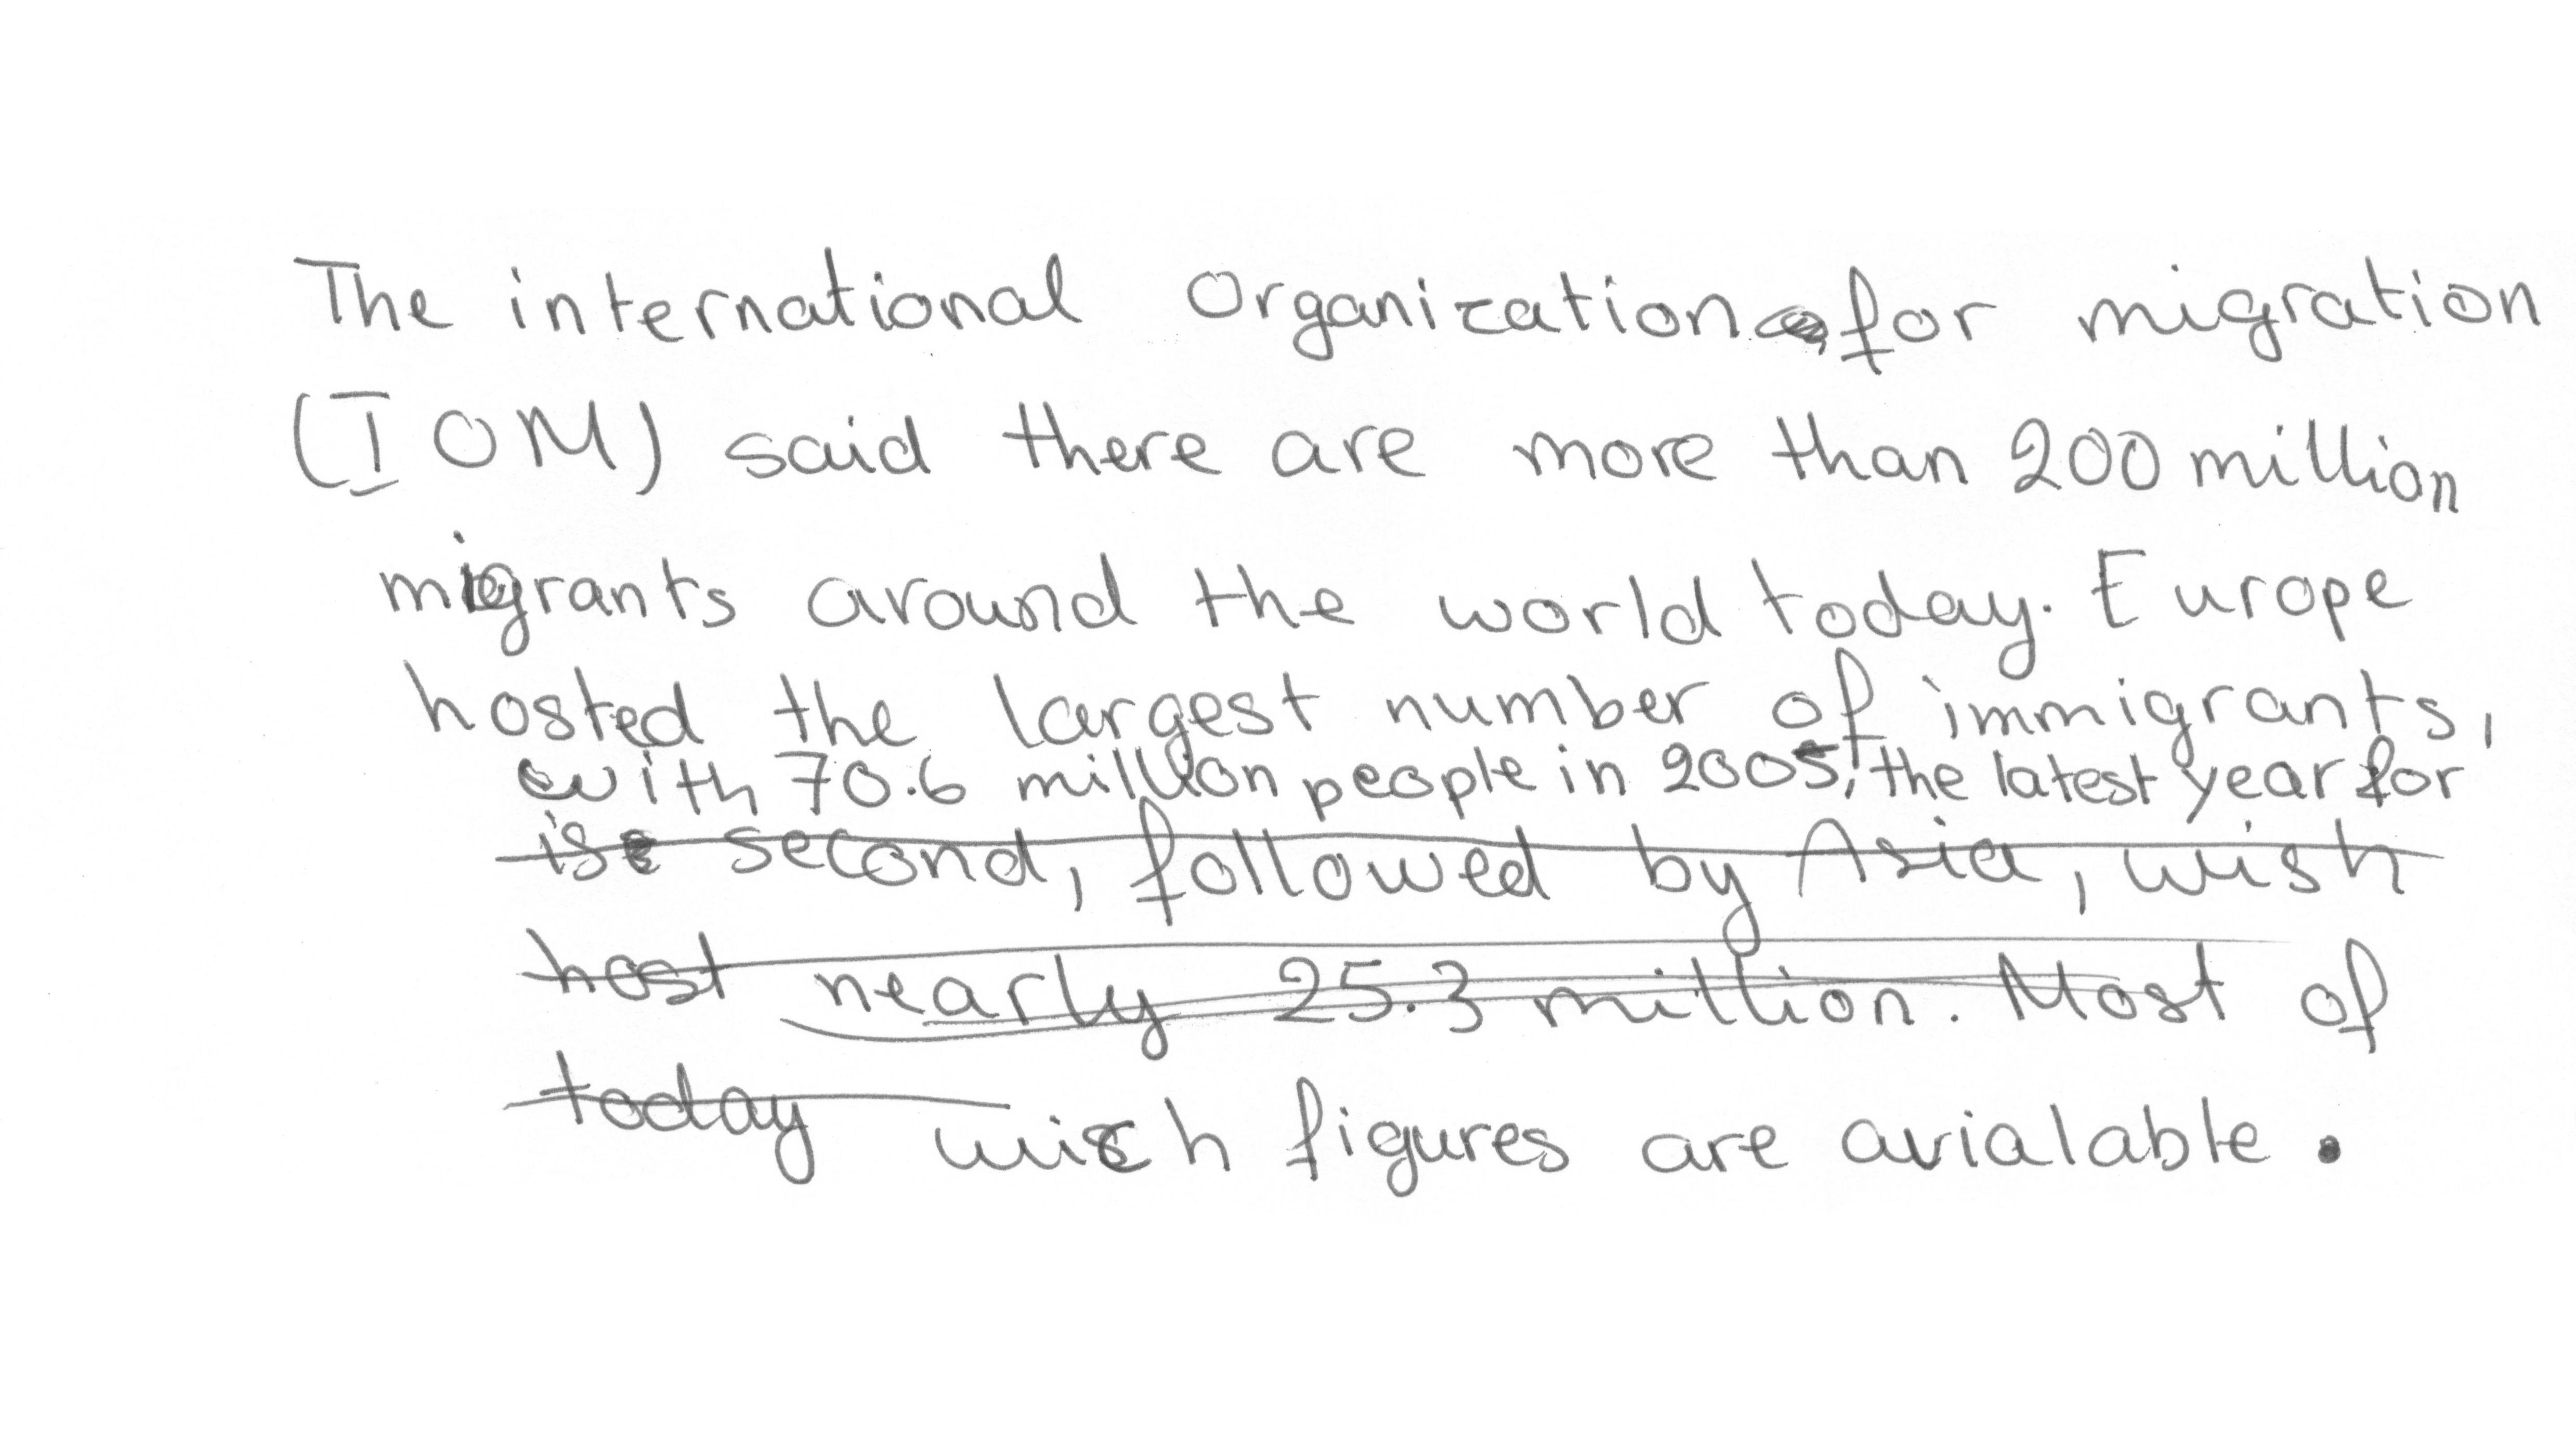 The international Organization for migration
(IOM) said there are more than 200 million
migrants around the world today. Europe
hosted the largest number of immigrants,
with 70.6 million people in 2005, the latest year for
is second, followed by Asia, wish
host nearly 25.3 million. Most of
today wich figures are avialable.